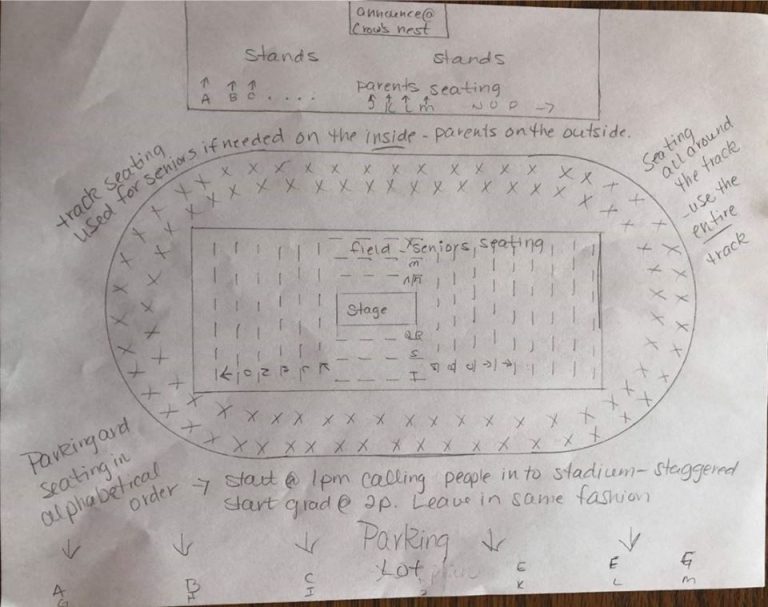 announce@
Crow's nest
Stands Stands
parents seating
A B C . . . . J K L M N O P →
track seating
used for seniors if needed on the inside - parents on the outside.
Seating
all around
the track
- use the
entire
track
field - seniors seating
m
Stage
QR
S
Parking and
seating in
alphabetical
order → start @ 1pm calling people in to stadium - staggered
start grad @ 2p. Leave in same fashion
Parking
Lot
A B C E E G
G H I K L M